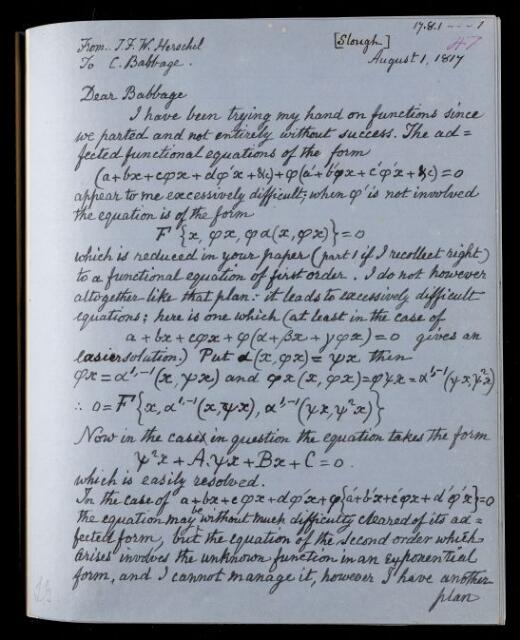 17.8.1 --- 1
47
From.. J.F.W. Herschel [Slough]
To C. Babbage. August 1, 1817
Dear Babbage
I have been trying my hand on functions since
we parted and not entirely without success. The ad=
fected functional equations of the form
(a+bx+cφx+dφ'x+&c)+φ(a'+b'x+c'φ'x+&c)=0
appear to me excessively difficult; when φ' is not involved
the equation is of the form
F{x, φx, φα(x, φx)}=0
which is reduced in your paper (part 1 if I recollect right)
to a functional equation of first order. I do not however
altogether like that plan: it leads to excessively difficult
equations; here is one which (at least in the case of
a+bx+cφx+φ(α+βx+γφx)=0 gives an
easier solution.) Put α(x, φx)=ψx then
φx=α^{1,-1}(x, ψx) and φα(x, φx)=φψx=α^{1,-1}(ψx, ψ²x)
∴ 0=F{x, α^{1,-1}(x, ψx), α^{1,-1}(ψx, ψ²x)}
Now in the cases in question the equation takes the form
ψ²x+A.ψx+Bx+C=0.
which is easily resolved.
In the case of a+bx+cφx+dφ'x+φ{a'+b'x+c'φx+d'φ'x}=0
the equation may be without much difficulty cleared of its ad=
fected form, but the equation of the second order which
arises involves the unknown function in an exponential
form, and I cannot manage it, however I have another
plan